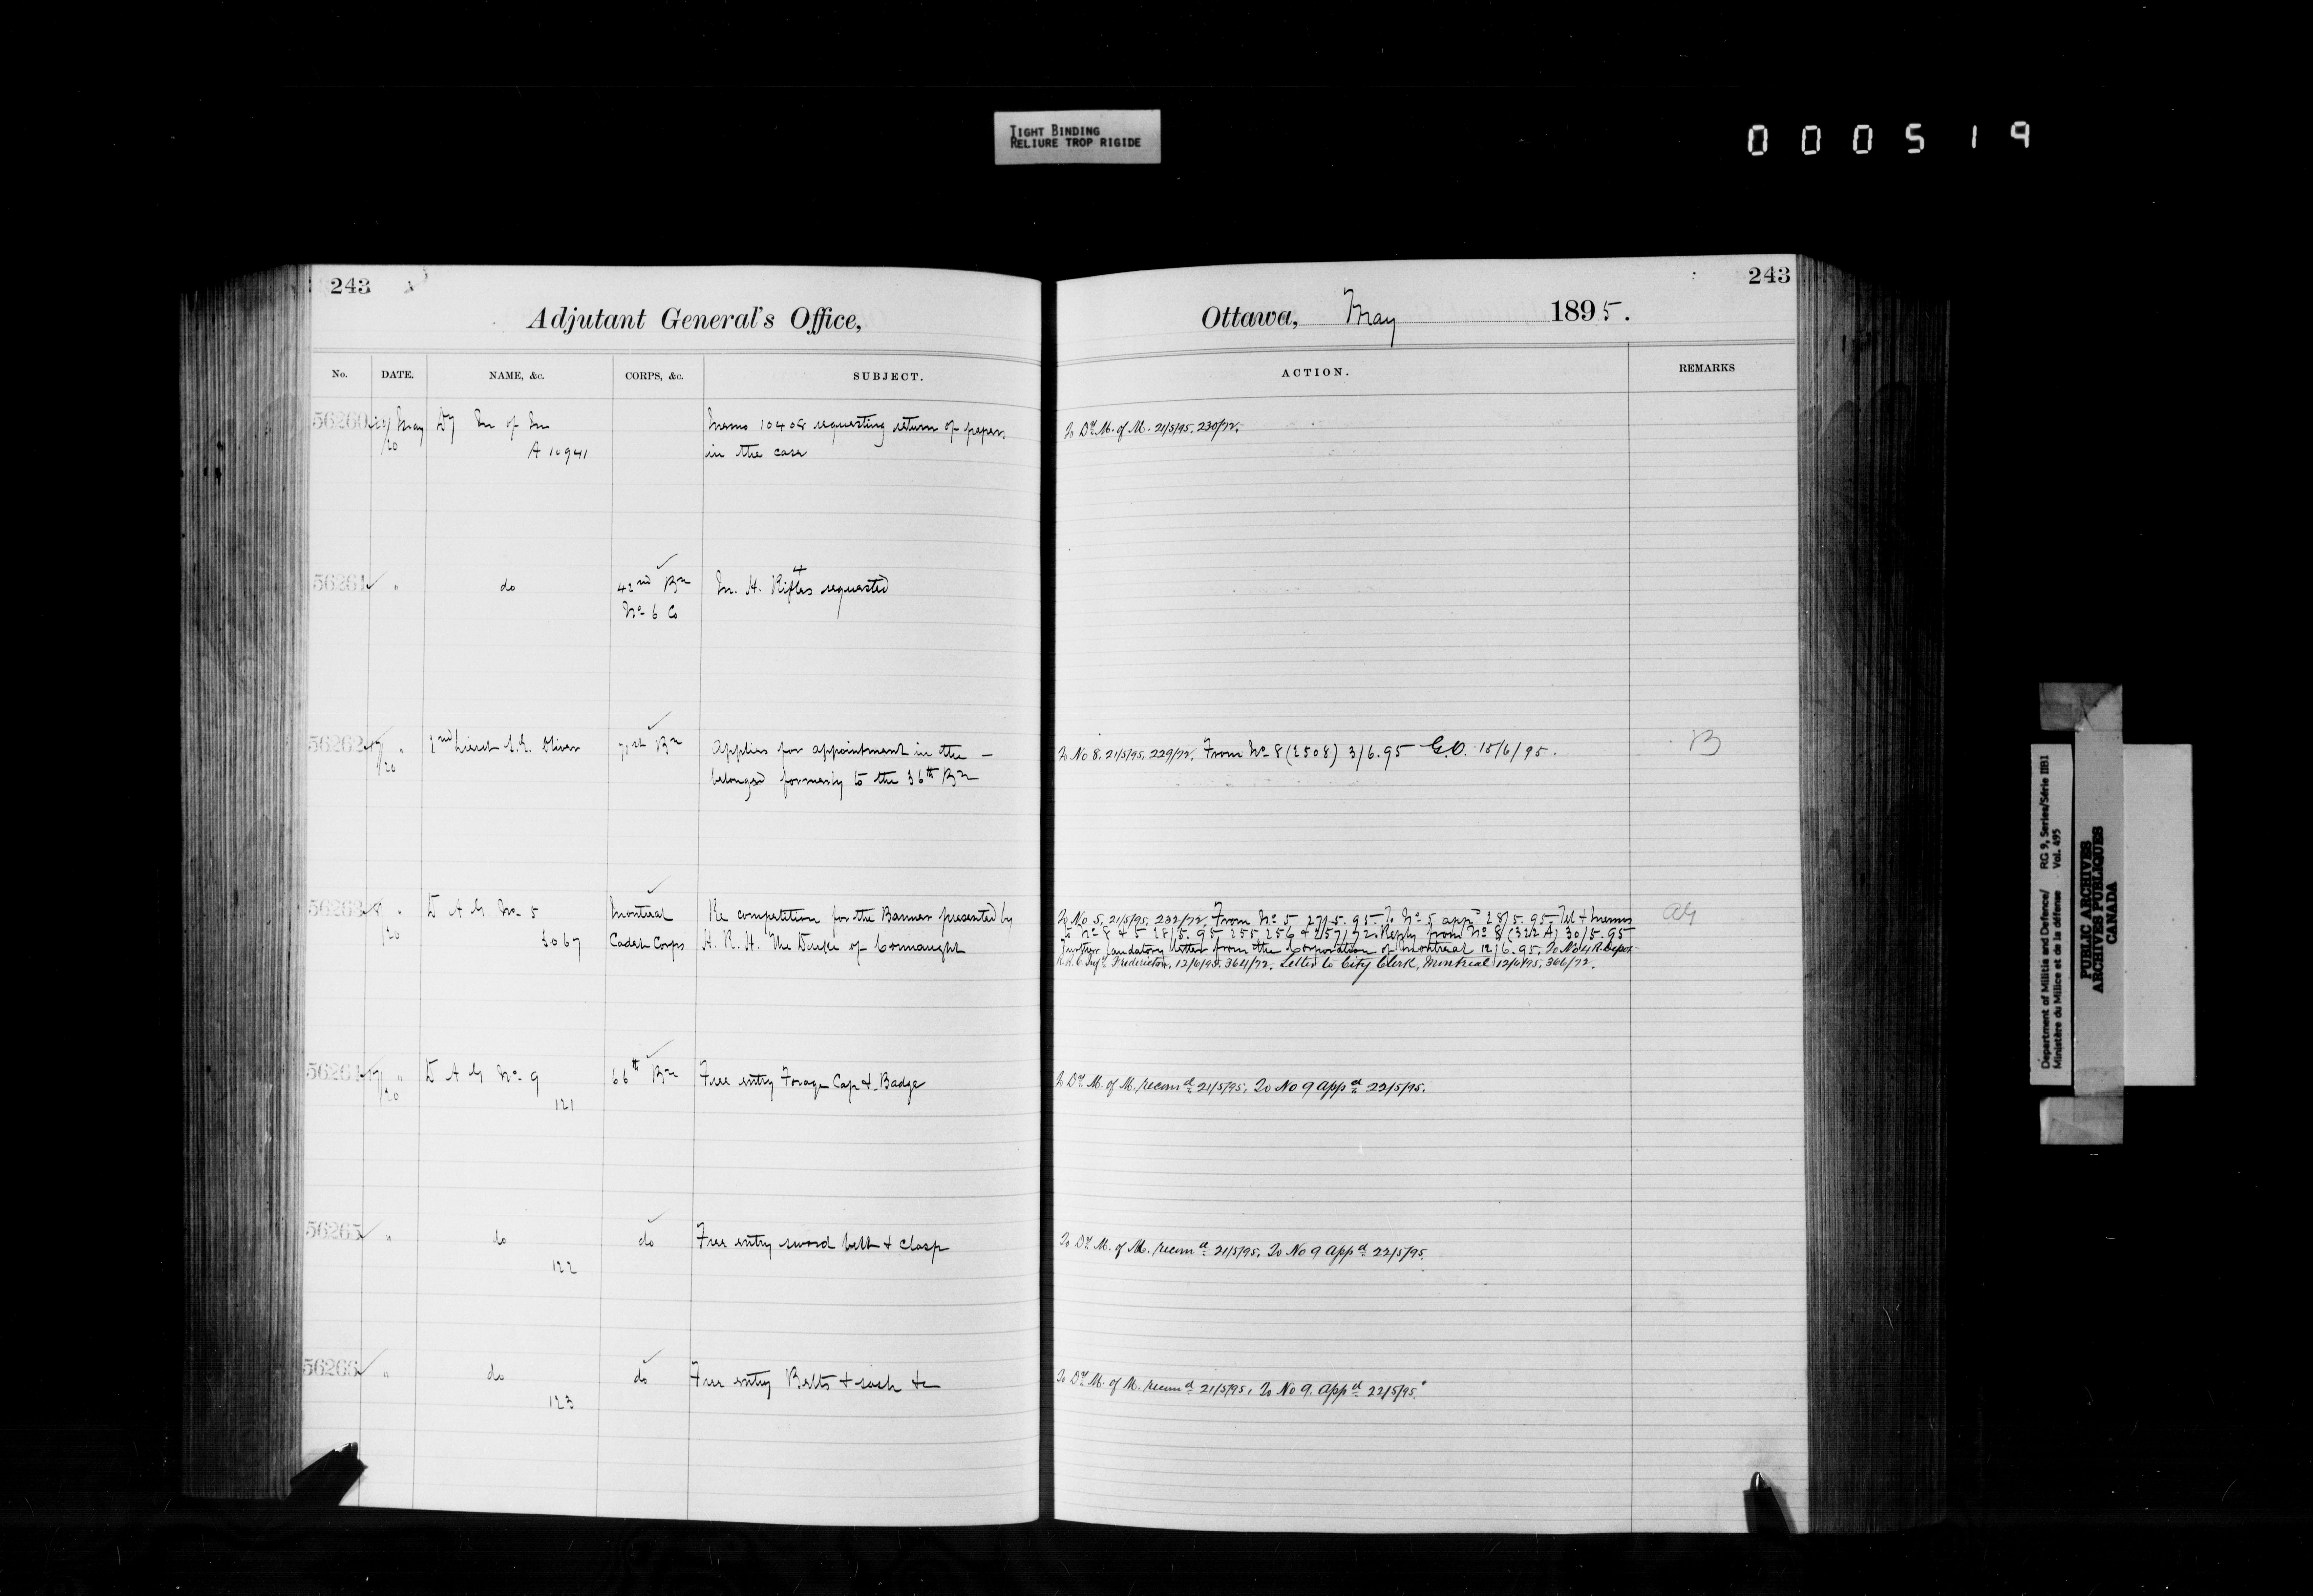 TIGHT BINDING
RELIURE TROP RIGIDE
000519
243
243
Adjutant General's Office,
Ottawa, May 1895.
No. DATE. NAME, &c. CORPS, &c. SUBJECT. ACTION. REMARKS
56260 May Dy M of M Memo 10408 requesting return of papers To Dy. M. of M. 21/5/95. 230/72.
20 A 10941 in the case
56261 " do 42nd Bn M. H. Rifles requested
No 6 Co
56262 " 2nd Lieut Oliver 71st Bn Applies for appointment in the — To No 8. 21/5/95. 229/72. From No 8 (2508) 3/6.95 G.O. 15/6/95. B
20 belonged formerly to the 36th Bn
56263 " D A G No 5 Montreal Re competition for the Banner presented by To No 5. 21/5/95. 232/72. From No 5 27/5.95. To No 5 appd 28/5.95. Tel & memo AG
20 3067 Cadet Corps H. R. H. the Duke of Connaught to No 8 & 5 28/5.95 255, 256 & 257/72. Reply from No 8 (322 A) 30/5.95
Further laudatory letter from the Corporation of Montreal 12/6.95. To No 4 R. Depot
R.R.C. Infy. Fredericton, 12/6/95. 364/72. Letter to City Clerk, Montreal 12/6/95. 366/72.
56264 " D A G No 9 66th Bn Free entry Forage Cap & Badge To Dy. M. of M. recomd 21/5/95. To No 9 appd 22/5/95.
20 121
56265 " do do Free entry sword belt & clasp To Dy. M. of M. recomd 21/5/95. To No 9 appd 22/5/95.
122
56266 " do do Free entry Belts & sash &c To Dy. M. of M. recomd 21/5/95. To No 9. appd 22/5/95.
123
Department of Militia and Defence/ RG 9, Series/Série IIB1
Ministère du Milice et de la défense Vol. 495
PUBLIC ARCHIVES
ARCHIVES PUBLIQUES
CANADA